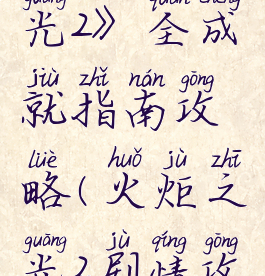 guāng quán chéng
光2》全成
jiù zhǐ nán gōng
就指南攻
lüè huǒ jù zhī
略(火炬之
guāng jù qíng gōng
光2剧情攻